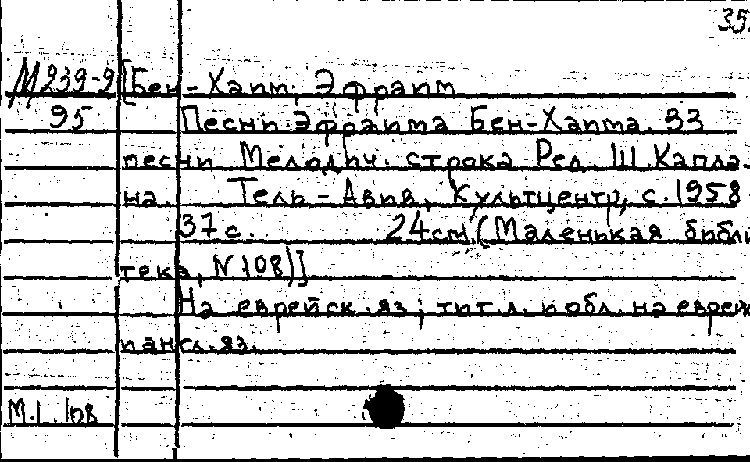 35
М239-9 [Бен-Хаим, Эфраим
95 Песни Эфраима Бен-Хаима. 33
песни Мелодич. строка Ред. Ш. Капла-
на. Тель-Авив, Культцентр, с.1958
37с. 24см (Маленькая библи
тека, N 108)]
На еврейск. яз; тит.л. и обл. на еврей
и англ. яз.
М.І. 108